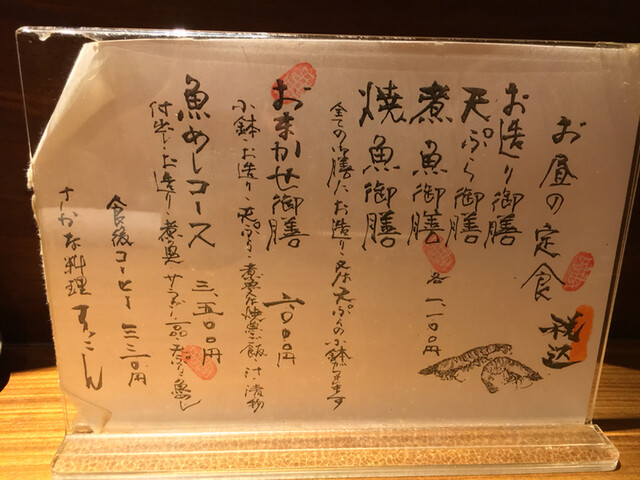 お昼の定食 税込
お造り御膳
天ぷら御膳
煮魚御膳 各 一、一〇〇円
焼魚御膳
全ての御膳に、お造り、又は天ぷらの小鉢が
おまかせ御膳
小鉢、お造り、天ぷら、煮魚又は焼魚、ご飯、汁、漬物
魚めしコース 三、五〇〇円
付出し、お造り、煮魚、サラダ
食後コーヒー 三三〇円
さかな料理